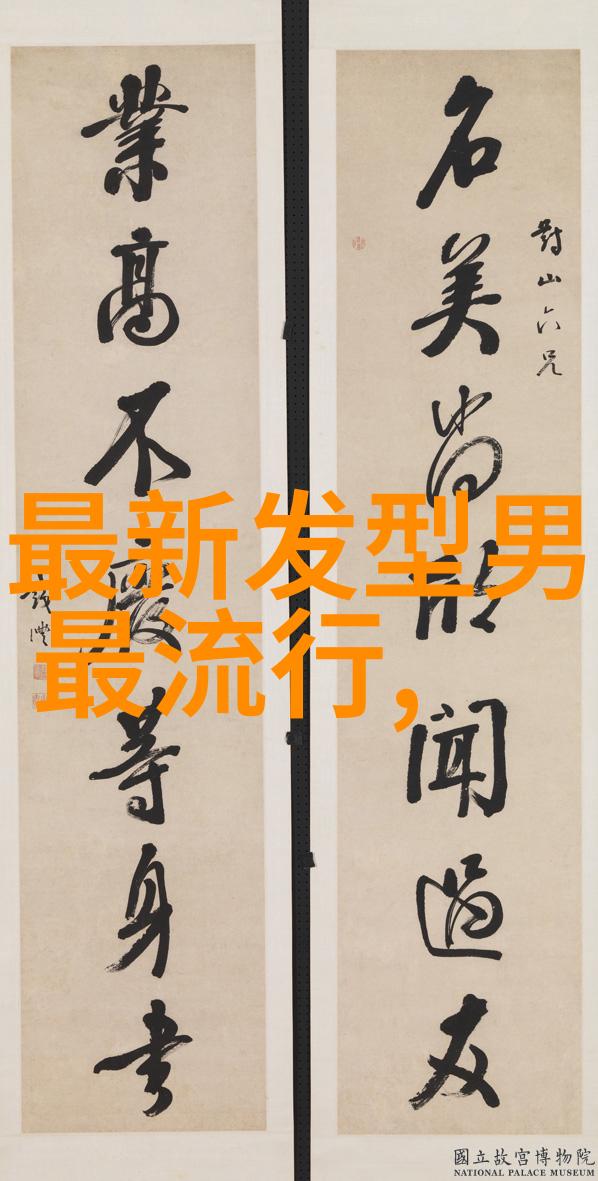 對山六兄
名美尚欣聞過友
業高不廢等身書
錢灃
最新发型男
最流行,
國立故宮博物院
NATIONAL PALACE MUSEUM